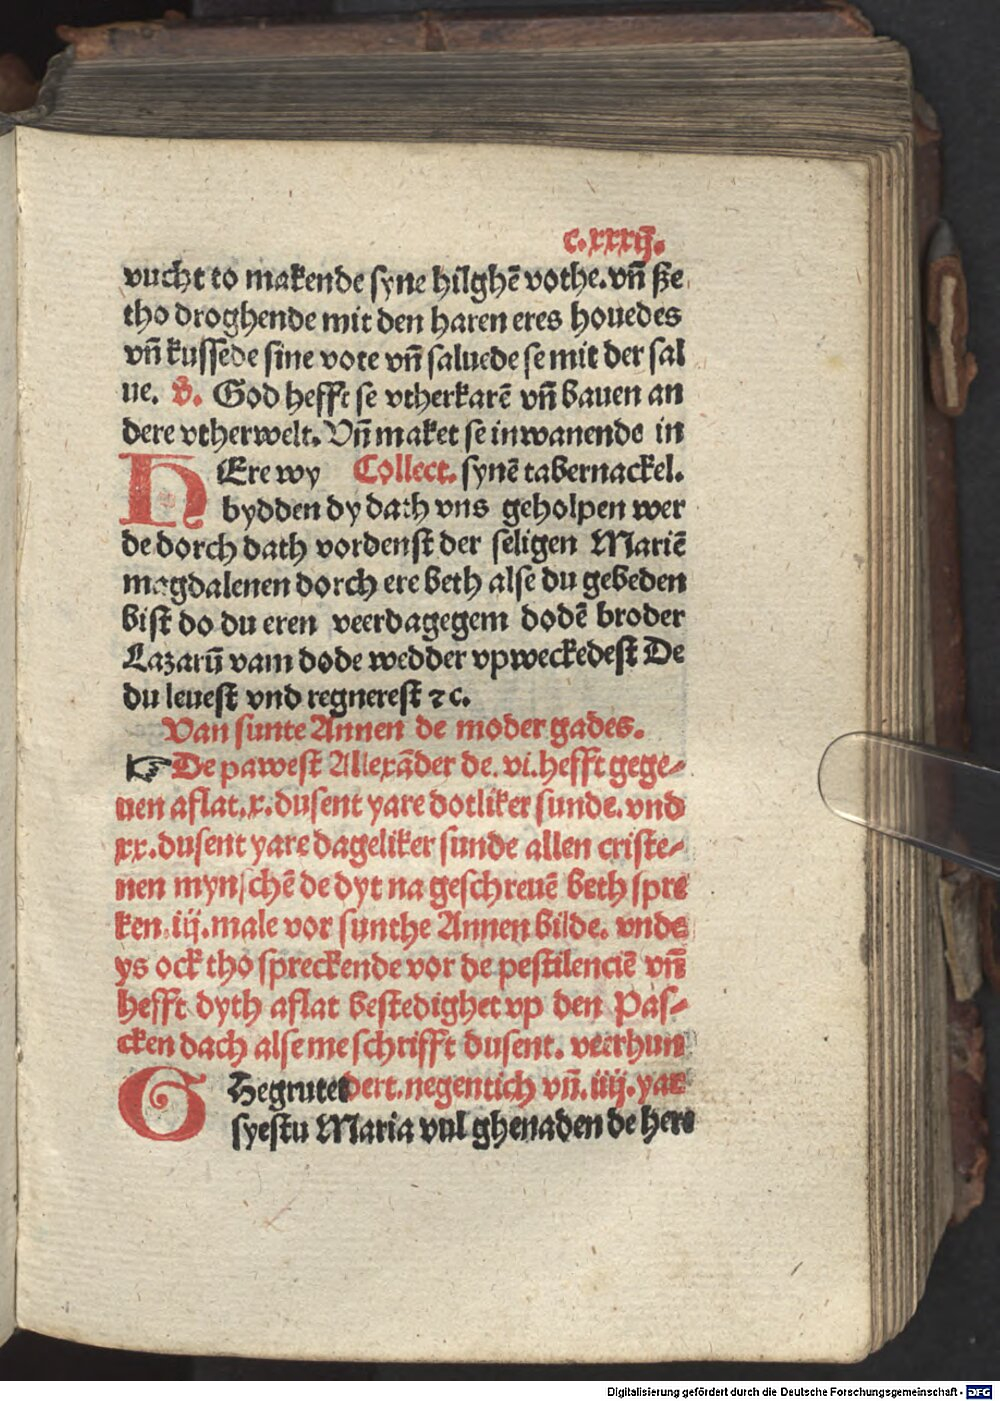 c.xxxij.
vucht to makende syne hilghē vothe. vn̄ ße
tho droghende mit den haren eres houedes
vn̄ kussede sine vote vn̄ saluede se mit der sal
ue. V. God hefft se vtherkarē vn̄ bauen an
dere vtherwelt. Vn̄ maket se inwanende in
HEre wy Collect. synē tabernackel.
bydden dy dath vns geholpen wer
de dorch dath vordenst der seligen Mariē
magdalenen dorch ere beth alse du gebeden
bist do du eren veerdagegem dodē broder
Lazarū vam dode wedder vpweckedest De
du leuest vnd regnerest ⁊c.
Van sunte Annen de moder gades.
☞ De pawest Allexāder de. vi. hefft gege⸗
uen aflat. x. dusent yare dotliker sunde. vnd
xx. dusent yare dageliker sunde allen criste⸗
nen mynschē de dyt na geschreuē beth spre
ken. iij. male vor sunthe Annen bilde. vnde
ys ock tho spreckende vor de pestilenciē vn̄
hefft dyth aflat bestedighet vp den Pas⸗
cken dach alse me schrifft dusent. veerhun
GHegrutet dert. negentich vn̄. iiij. yar
syestu Maria vul ghenaden de here
Digitalisierung gefördert durch die Deutsche Forschungsgemeinschaft - DFG